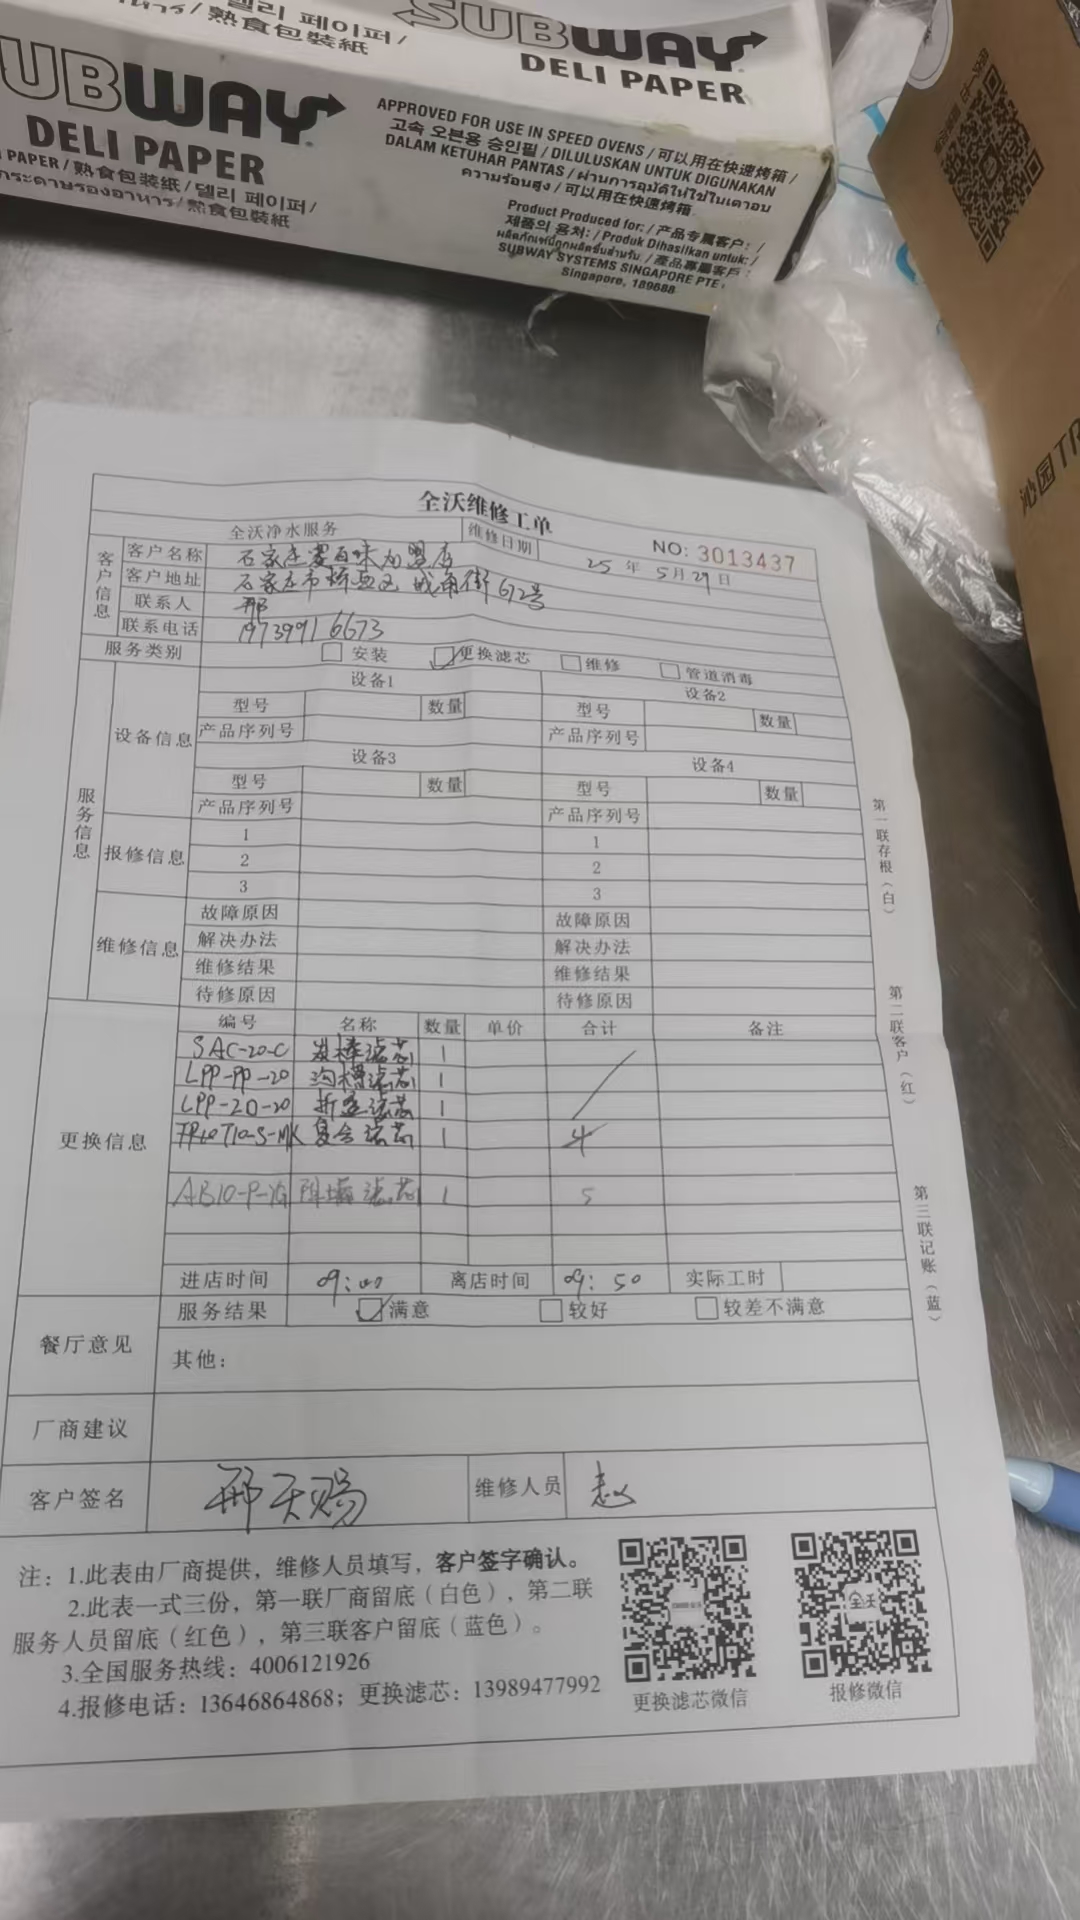 델리 페이퍼/
熟食包裝紙
SUBWAY
DELI PAPER
UBWAY
DELI PAPER
PAPER/熟食包装纸/델리 페이퍼/
กระดาษรองอาหาร/熟食包裝紙
APPROVED FOR USE IN SPEED OVENS/可以用在快速烤箱/
고속 오븐용 승인필/DILULUSKAN UNTUK DIGUNAKAN
DALAM KETUHAR PANTAS/ผ่านการอุมัติให้ใช้ในเตาอบ
ความร้อนสูง/可以用在快速烤箱
Product Produced for:/产品专属客户:/
제품의 용처:/Produk Dihasilkan untuk:/
ผลิตภัณฑ์นี้ถูกผลิตขึ้นสำหรับ:/產品專屬客戶:
SUBWAY SYSTEMS SINGAPORE PTE
Singapore, 189688
沁园TR
全沃维修工单
全沃净水服务 维修日期 25年5月29日 NO: 3013437
客户信息
客户名称 石家庄 百味加盟店
客户地址 石家庄市桥西区 城角街612号
联系人 邢
联系电话 19739916673
服务类别 安装 更换滤芯 维修 管道消毒
服务信息
设备信息
设备1 设备2
型号 数量 型号 数量
产品序列号 产品序列号
设备3 设备4
型号 数量 型号 数量
产品序列号 产品序列号
报修信息
1 1
2 2
3 3
维修信息
故障原因 故障原因
解决办法 解决办法
维修结果 维修结果
待修原因 待修原因
更换信息
编号 名称 数量 单价 合计 备注
SAC-20-C 炭棒滤芯 1
LPP-PP-20 沟槽滤芯 1
LPP-20-20 折叠滤芯 1
复合滤芯 1 4
阻垢滤芯 1 5
进店时间 09:00 离店时间 09:50 实际工时
餐厅意见
服务结果 满意 较好 较差不满意
其他:
厂商建议
客户签名 邢天赐 维修人员
第一联存根(白)
第二联客户(红)
第三联记账(蓝)
注:1.此表由厂商提供,维修人员填写,客户签字确认。
2.此表一式三份,第一联厂商留底(白色),第二联
服务人员留底(红色),第三联客户留底(蓝色)。
3.全国服务热线:4006121926
4.报修电话:13646864868;更换滤芯:13989477992
更换滤芯微信
报修微信